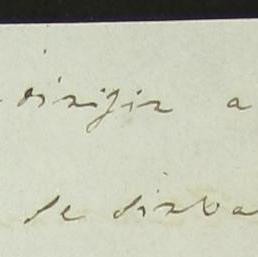 dirigir a
se sirva